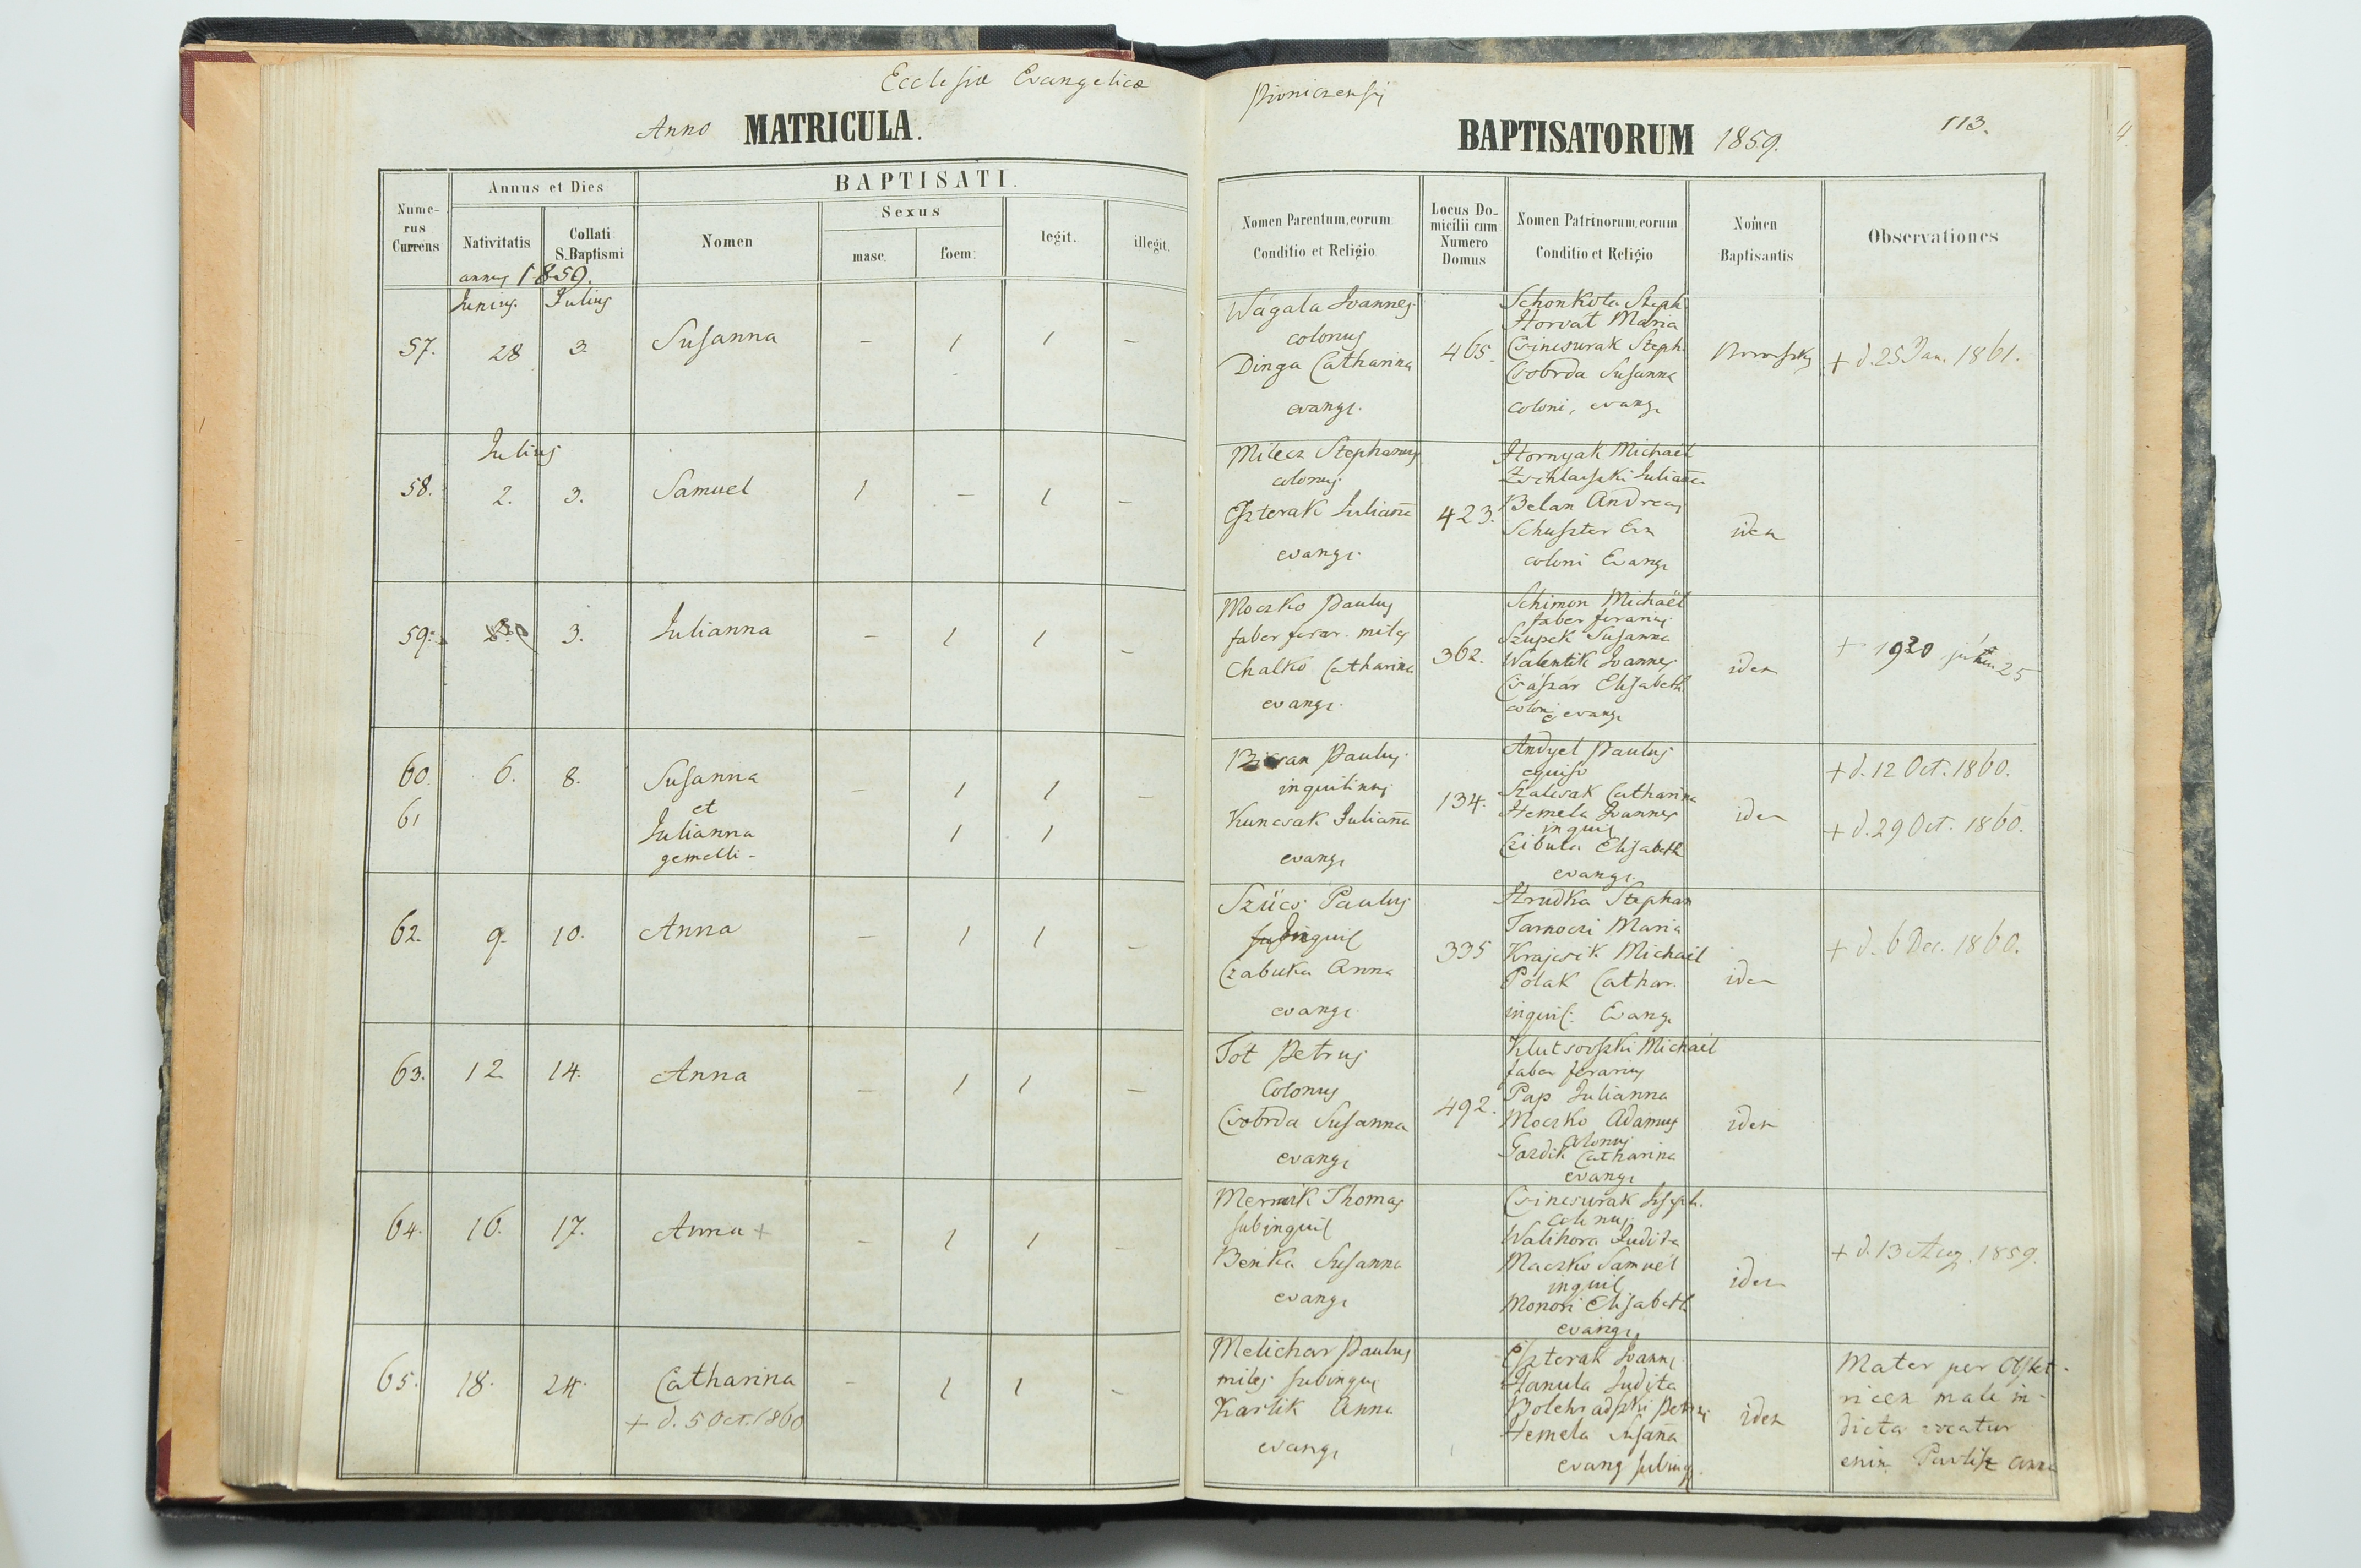 Ecclesiæ Evangelicæ
Anno MATRICULA.
BAPTISATORUM 1859.
113.
Nume-
rus
Currens
Annus et Dies
Nativitatis
Collati
S. Baptismi
BAPTISATI.
Nomen
Sexus
masc.
foem:
legit.
illegit.
Nomen Parentum, eorum
Conditio et Religio
Locus Do-
micilii cum
Numero
Domus
Nomen Patrinorum, eorum
Conditio et Religio
Nomen
Baptisantis
Observationes
annus 1859.
Junius. Julius
57. 28 3. Susanna — 1 1 —
Wágala Joannes
colonus
Dinga Catharina
evang.
465.
Schonkola Steph.
Horvát Maria
Csincsurak Steph.
Csobrda Susanna
coloni, evang.
+ d. 25 Jan. 1861.
Julius
58. 2. 3. Samuel 1 — 1 —
Milecz Stephanus
colonus
Eszterak Julianna
evang.
423.
Hornyak Michaël
Julianna
Belan Andreas
Schuszter Eva
coloni Evang.
idem
59. 3. Julianna — 1 1 —
Moczko Paulus
faber ferar. miles
Chalko Catharina
evang.
362.
Schimon Michaël
faber ferarius
Szupek Susanna
Walentik Joannes
Császár Elisabeth
coloni evang.
idem
+ 1920 25
60. 6. 8. Susanna — 1 1 —
et
61 Julianna 1 1
gemelli -
Paulus
inquilinus
Kuncsak Julianna
evang.
134.
Andyel Paulus
Szalcsak Catharina
Hemela Joannes
inquil
Czibula Elisabeth
evang.
idem
+ d. 12 Oct. 1860.
+ d. 29 Oct. 1860.
62. 9. 10. Anna — 1 1 —
Szücs Paulus
inquil
Czabuka Anna
evang.
335
Hrudka Stephan
Tarnoczi Maria
Krajcsik Michaël
Polak Cathar.
inquil. Evang.
idem
+ d. 6 Dec. 1860.
63. 12 14. Anna — 1 1 —
Tot Petrus
Colonus
Csobrda Susanna
evang.
492.
Klutsovszki Michaël
faber ferarius
Pap Julianna
Moczko Adamus
colonus
Gazdik Catharina
evang.
idem
64. 16. 17. Anna + — 1 1 —
Thomas
subinquil
Benka Susanna
evang.
Csincsurak Joseph.
colonus
Walihora Judita
Maczko Samuël
inquil
Monori Elisabeth
evang.
idem
+ d. 13 Aug. 1859.
65. 18. 24. Catharina — 1 1 —
+ d. 5 Oct. 1860
Melichar Paulus
miles subinqui
Karlik Anna
evang.
Eszterak Joannes
Hanula Judita
Bolehradszki Petrus
Hemela Susanna
evang subinq.
idem
Mater per Obstet-
ricem male in-
dicta vocatur
enim Anna